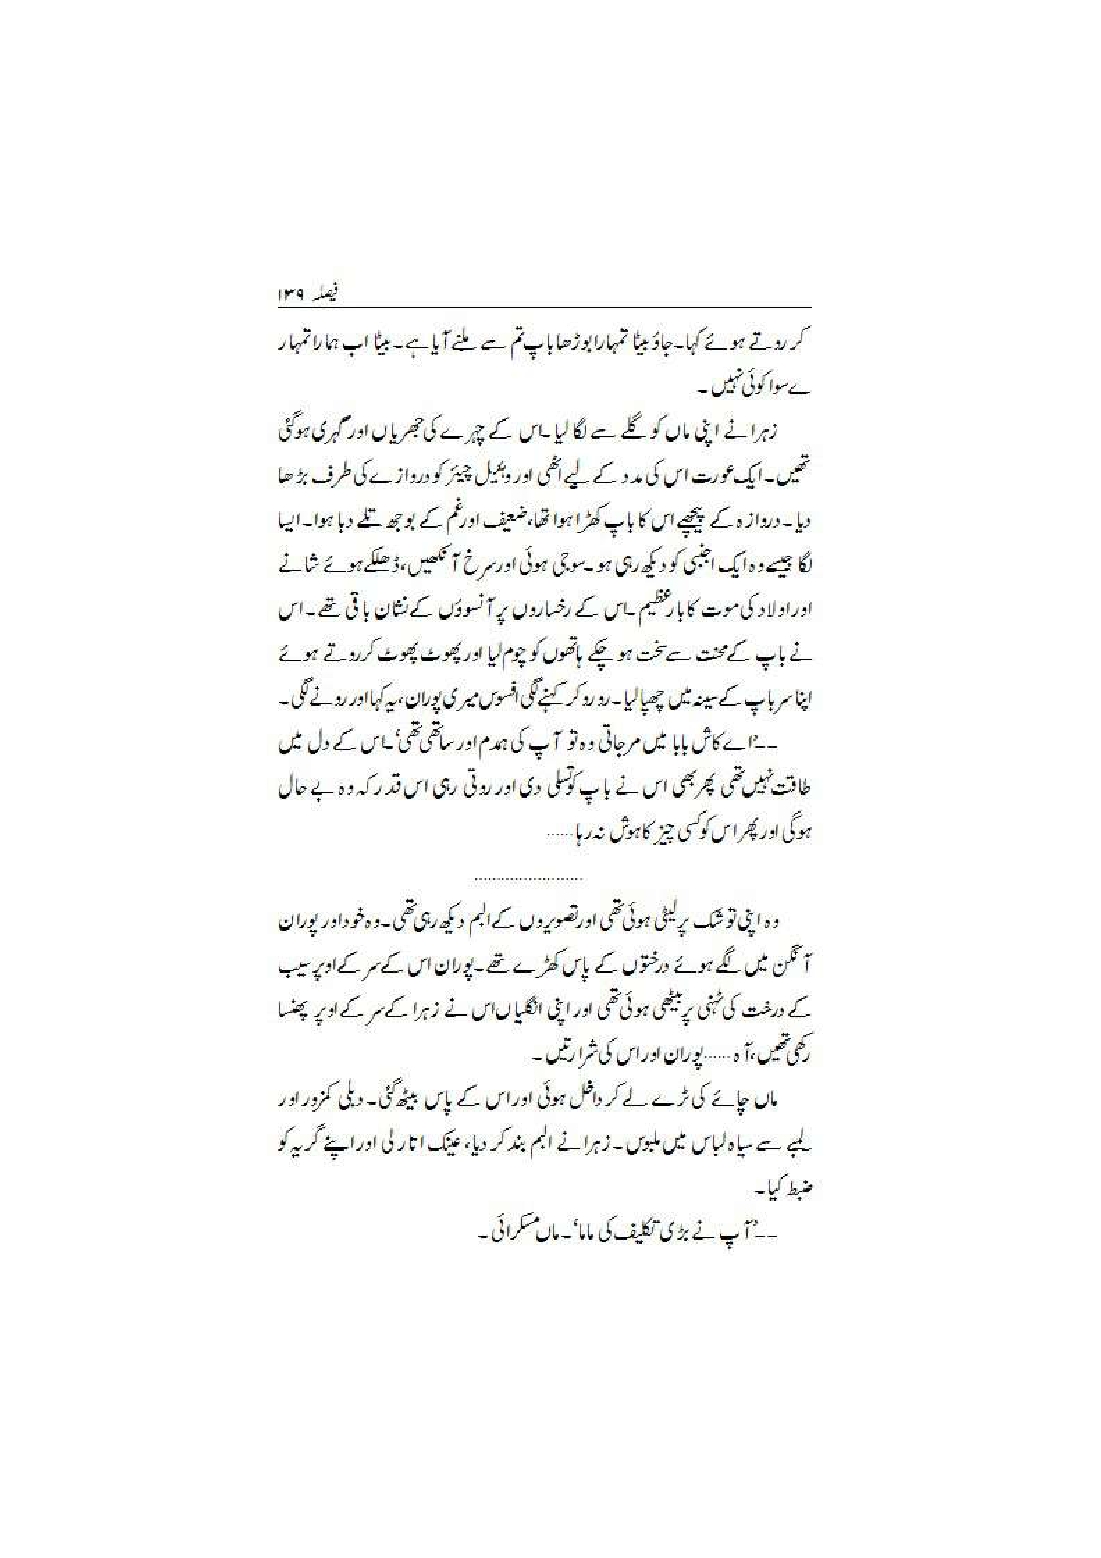 فیصلہ ۱۳۹
کر روتے ہوئے کہا۔جاؤ بیٹا تمہارا بوڑھا باپ تم سے ملنے آیا ہے۔ بیٹا اب ہمارا تمہار
ے سوا کوئی نہیں ۔
زہرا نے اپنی ماں کو گلے سے لگا لیا۔اس کے چہرے کی جھریاں اور گہری ہوگئی
تھیں۔ایک عورت اس کی مدد کے لیے اٹھی اور وہئیل چیئر کو دروازے کی طرف بڑھا
دیا۔دروازہ کے پیچھے اس کا باپ کھڑا ہوا تھا،ضعیف اور غم کے بوجھ تلے دبا ہوا۔ایسا
لگا جیسے وہ ایک اجنبی کو دیکھ رہی ہو۔سوجی ہوئی اور سرخ آنکھیں،ڈھلکے ہوئے شانے
اور اولاد کی موت کا بار عظیم۔اس کے رخساروں پر آنسوؤں کے نشان باقی تھے۔اس
نے باپ کے محنت سے سخت ہو چکے ہاتھوں کو چوم لیا اور پھوٹ پھوٹ کر روتے ہوئے
اپنا سر باپ کے سینہ میں چھپا لیا۔رو رو کر کہنے لگی افسوس میری پوران،یہ کہا اور رونے لگی۔
۔۔’اے کاش بابا میں مر جاتی وہ تو آپ کی ہمدم اور ساتھی تھی‘۔اس کے دل میں
طاقت نہیں تھی پھر بھی اس نے باپ کو تسلی دی اور روتی رہی اس قدر کہ وہ بے حال
ہوگی اور پھر اس کو کسی چیز کا ہوش نہ رہا......
.........................
وہ اپنی توشک پر لیٹی ہوئی تھی اور تصویروں کے البم دیکھ رہی تھی۔وہ خود اور پوران
آنگن میں لگے ہوئے درختوں کے پاس کھڑے تھے۔پوران اس کے سر کے اوپر سیب
کے درخت کی ٹہنی پر بیٹھی ہوئی تھی اور اپنی انگلیاں اس نے زہرا کے سر کے اوپر پھنسا
رکھی تھیں،آہ......پوران اور اس کی شرارتیں ۔
ماں چائے کی ٹرے لے کر داخل ہوئی اور اس کے پاس بیٹھ گئی۔ دبلی کمزور اور
لمبے سے سیاہ لباس میں ملبوس۔زہرا نے البم بند کر دیا، عینک اتار لی اور اپنے گریہ کو
ضبط کیا۔
۔۔’آپ نے بڑی تکلیف کی ماما‘۔ماں مسکرائی ۔